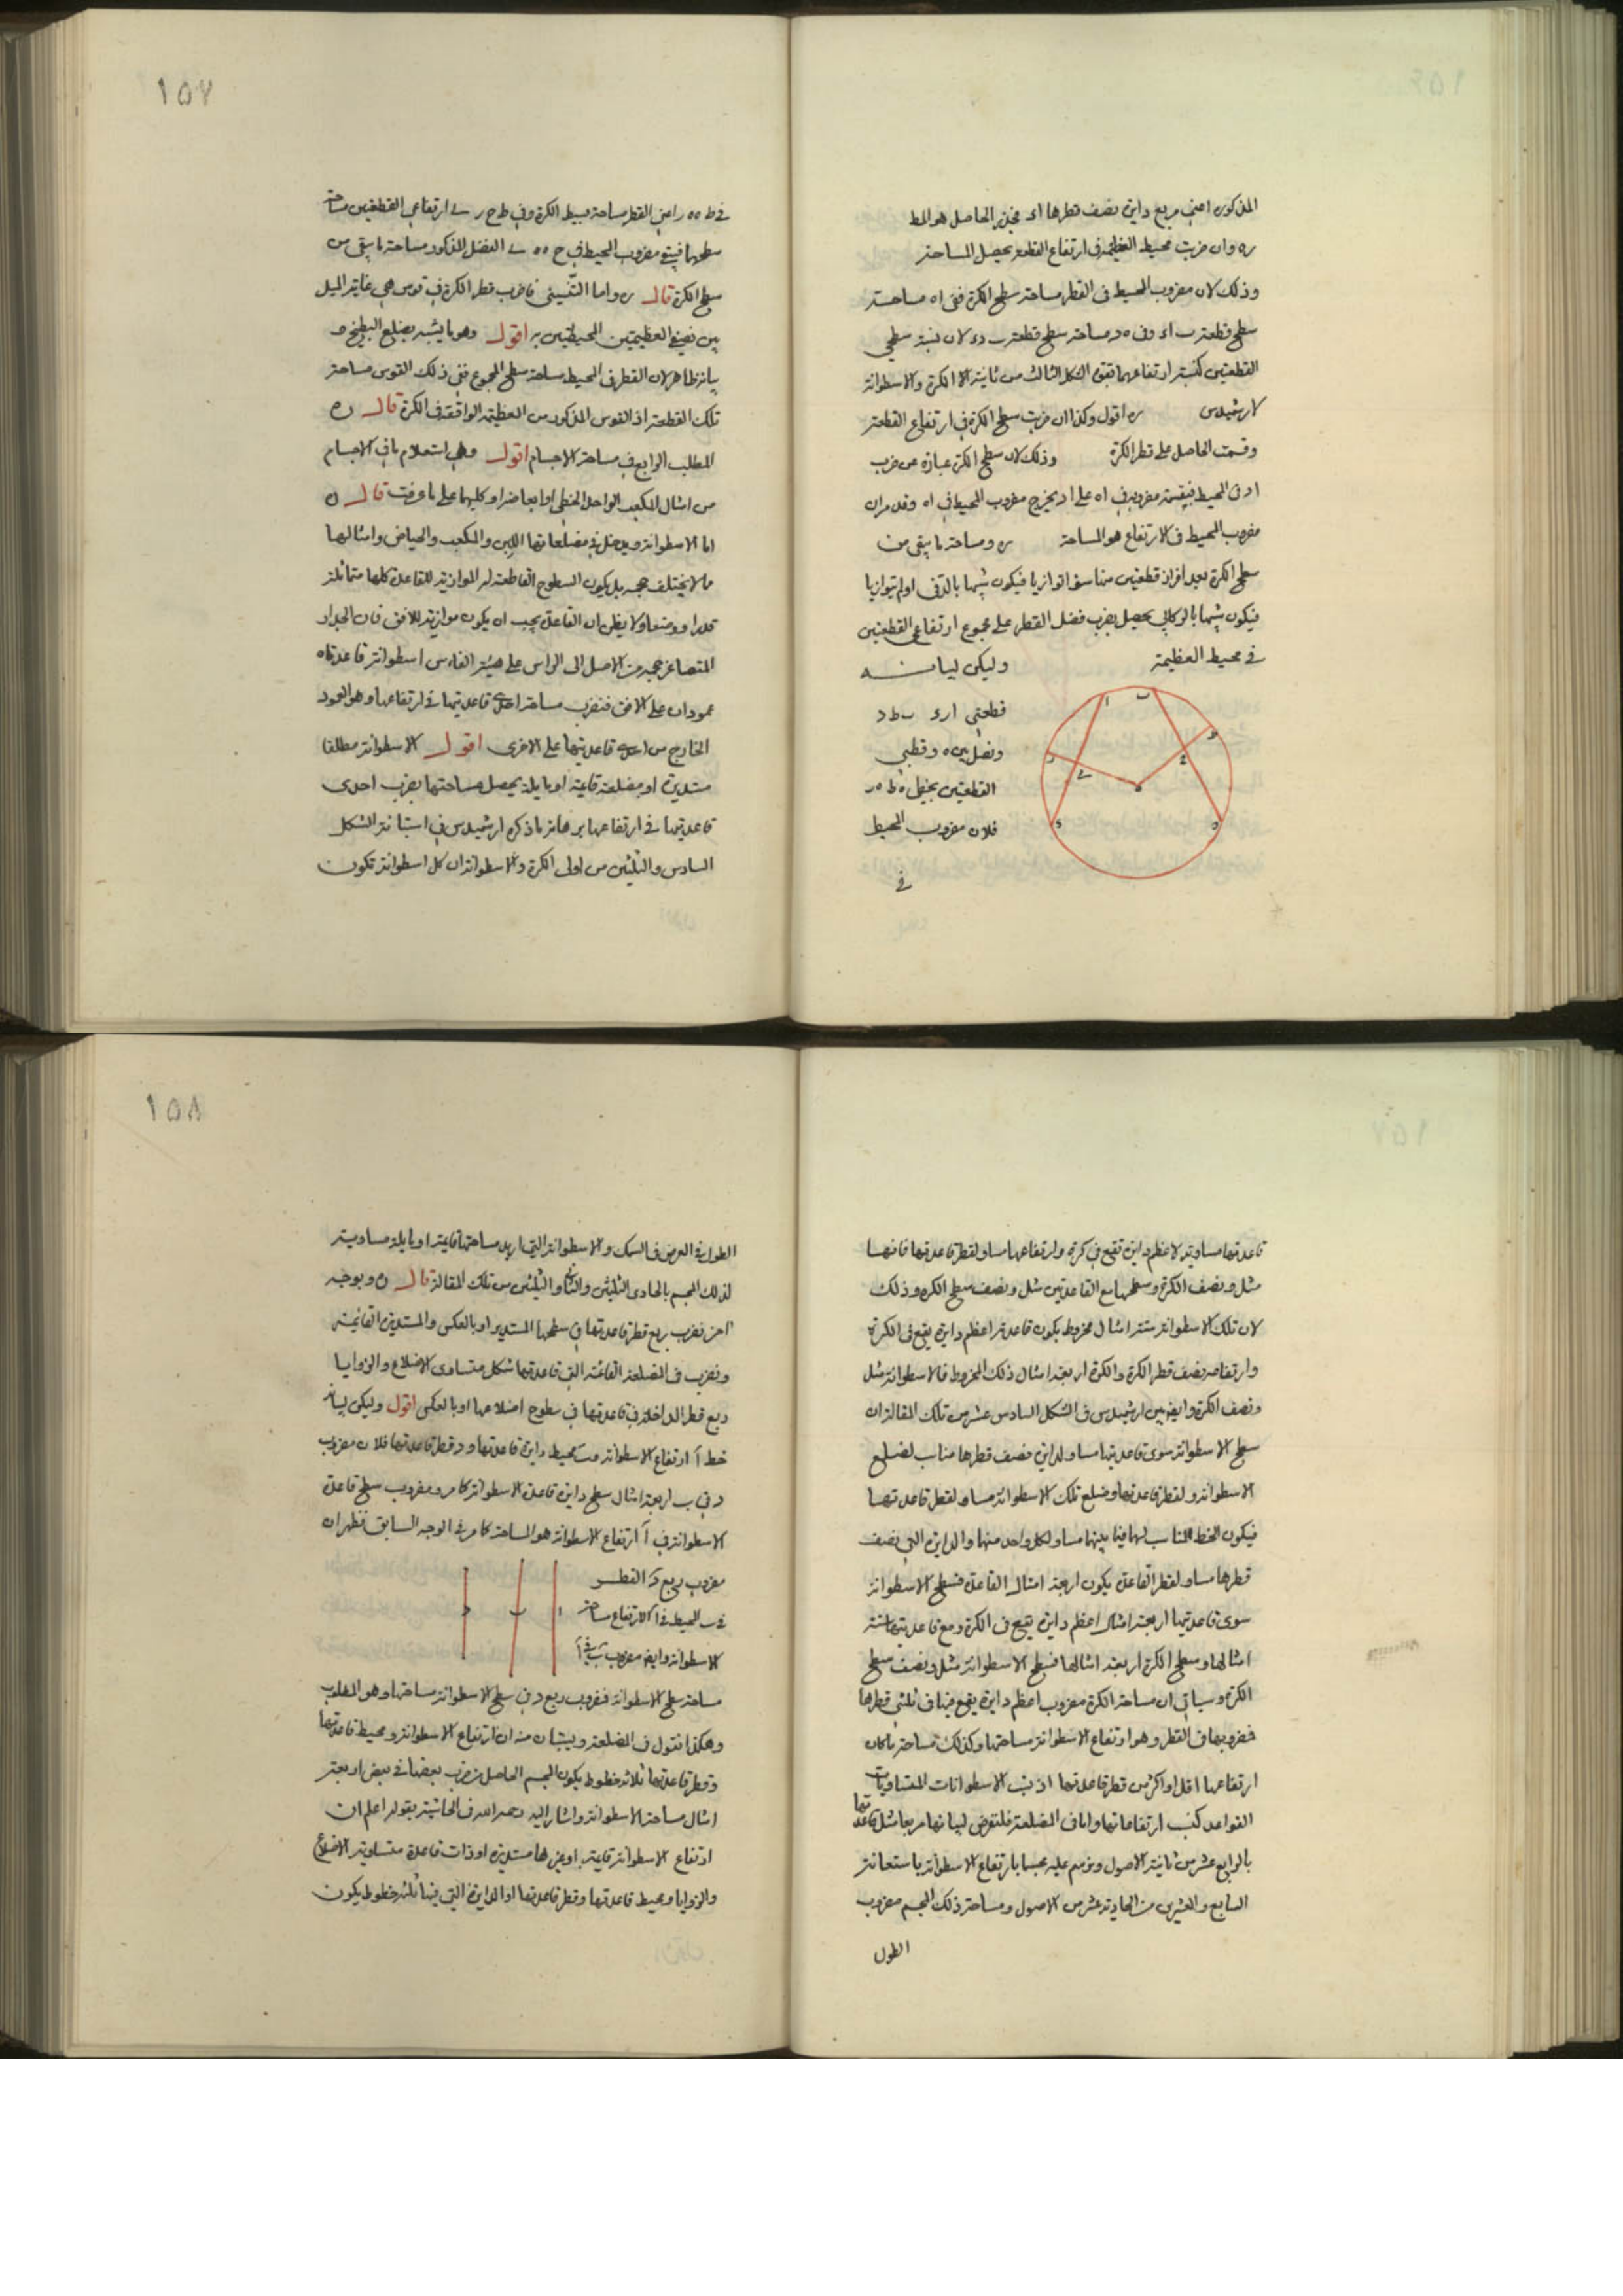 المذكور اعني مربع دايرة نصف قطرها اد فجذر الحاصل هو المط
ره وان ضربت محيط العظيمة في ارتفاع القطعة يحصل المساحة
وذلك لان مضروب المحيط فى القطر مساحة سطح الكرة ففى اه مساحة
سطح قطعة ب اء وفى ه د مساحة سطح قطعة ب دء لان نسبة سطحي
القطعتين كنسبة ارتفاعهما بقوة الشكل الثالث من ثانية الكرة والاسطوانة
لارشميدس ره اقول وكذا ان ضربت سطح الكرة في ارتفاع القطعة
وقسمت الحاصل على قطر الكرة وذلك لان سطح الكرة عبارة عن ضرب
اد فى المحيط فبقسمة مضروبه في اه على اد يخرج مضروب المحيط في اه وقد مر ان
مضروب المحيط فى الارتفاع هو المساحة ره ومساحة ما يبقى من
سطح الكرة بعد افراز قطعتين منها سواء توازيا فيكون شبيها بالدف او لم يتوازيا
فيكون شبيها بالوكالي يحصل بضرب فضل القطر على مجموع ارتفاعي القطعتين
في محيط العظيمة وليكن لبيانه
قطعتي ارء ب ط د
ونصل بين ه وقطبي
القطعتين بخطي ه ط ه ر
فلان مضروب المحيط
في
١٥٧
في ط ه ه ر اعني القطر مساحة بسيط الكرة وفي ط ح ر ے ارتفاعي القطعتين مساحة
سطحهما فيبقى مضروب المحيط في ح ه ه ے الفضل المذكور مساحة ما يبقى من
سطح الكرة قال ره واما التنيني فاضرب قطر الكرة في قوس هي غاية الميل
بين نصفي العظيمتين المحيطتين به اقول وهو ما يشبه بضلع البطيخ و
بيانه ظاهر لان القطر فى المحيط مساحة سطح المجموع ففي ذلك القوس مساحة
تلك القطعة اذ القوس المذكور من العظيمة الواقعة في الكرة قال ره
المطلب الرابع في مساحة الاجسام اقول وهي استعلام ما في الاجسام
من امثال المكعب الواحد الخطي او ابعاضه او كليهما على ما عرفت قال ره
اما الاسطوانة ويدخل في مضلعاتها اللبن والمكعب والحياض وامثالها
مما لا يختلف حجمه بل يكون السطوح القاطعة له الموازية للقاعدة كلها متماثلة
قدرا ووضعا ولا يظن ان القاعدة يجب ان يكون موازية للافق فان الجدار
المتصاغر حجمه من الاصل الى الراس على هيئة الفاس اسطوانة قاعدتاه
عمودان على الافق فنضرب مساحة احدى قاعدتيها في ارتفاعها وهو العمود
الخارج من احدى قاعدتيها على الاخرى اقول الاسطوانة مطلقا
مستديرة او مضلعة قايمة او مايلة يحصل مساحتها بضرب احدى
قاعدتيها في ارتفاعها برهانه ما ذكره ارشميدس في استبانة الشكل
السادس والثلثين من اولى الكرة والاسطوانة ان كل اسطوانة تكون
قاعدتها مساوية لاعظم دايرة تقع في كرة وارتفاعها مساو لقطر قاعدتها فانها
مثل ونصف الكرة وسطحها مع القاعدتين مثل ونصف سطح الكره وذلك
لان تلك الاسطوانة ستة امثال مخروط يكون قاعدته اعظم دايرة يقع فى الكرة
وارتفاعه نصف قطر الكرة والكرة اربعة امثال ذلك المخروط فالاسطوانة مثل
ونصف الكرة وايضا بين ارشميدس فى الشكل السادس عشر من تلك المقالة ان
سطح الاسطوانة سوى قاعدتيها مساو لدايرة نصف قطرها مناسب لضلع
الاسطوانة ولقطر قاعدتها وضلع تلك الاسطوانة مساو لقطر قاعدتها
فيكون الخط المناسب لهما فيما بينهما مساو لكل واحد منهما والدايرة التي نصف
قطرها مساو لقطر القاعدة يكون اربعة امثال القاعدة فسطح الاسطوانة
سوى قاعدتيها اربعة امثال اعظم دايرة يقع فى الكرة ومع قاعدتيها ستة
امثالها وسطح الكرة اربعة امثالها فسطح الاسطوانة مثل ونصف سطح
الكرة وسياتي ان مساحة الكرة مضروب اعظم دايرة يقع فيها في ثلثي قطرها
فمضروبها فى القطر وهو ارتفاع الاسطوانة مساحتها وكذلك مساحة ما كان
ارتفاعها اقل او اكثر من قطر قاعدتها اذ نسب الاسطوانات المتساويات
القواعد كنسب ارتفاعاتها واما في المضلعة فلنفرض لبيانها مربعا مثل قاعدتها
بالرابع عشر من ثانية الاصول ونرسم عليه مجسما بارتفاع الاسطوانة باستعانة
السابع والعشرين من الحادية عشر من الاصول ومساحة ذلك المجسم مضروب
الطول
١٥٨
الطول في العرض فى السمك والاسطوانة التي اريد مساحتها قايمة او مايلة مساوية
لذلك المجسم بالحادى الثلثين والثانى والثلثين من تلك المقالة قال ره وبوجه
اخر نضرب ربع قطر قاعدتها في سطحها المستدير او بالعكس والمستديرة القائمة
ونضرب فى المضلعة القائمة التي قاعدتها شكل متساوى الاضلاع والزوايا
ربع قطر الداخلة في قاعدتها في سطوح اضلاعها او بالعكس اقول وليكن لبيانه
خط آ ارتفاع الاسطوانة وب محيط دايرة قاعدتها و د قطر قاعدتها فلان مضروب
د في ب اربعة امثال سطح دايرة قاعدة الاسطوانة كما مر ومضروب سطح قاعدة
الاسطوانة في آ ارتفاع الاسطوانة هو المساحة كما مر في الوجه السابق فظهر ان
مضروب ربع د القطر
في ب المحيط في ا الارتفاع مساحة
الاسطوانة وايضا مضروب ب في آ
مساحة سطح الاسطوانة فمضروب ربع د في سطح الاسطوانة مساحتها وهو المطلوب
وهكذا نقول فى المضلعة ويستبان منه ان ارتفاع الاسطوانة ومحيط قاعدتها
وقطر قاعدتها ثلاثة خطوط يكون المجسم الحاصل من ضرب بعضها في بعض اربعة
امثال مساحة الاسطوانة واشار اليه رحمه الله فى الحاشية بقوله اعلم ان
ارتفاع الاسطوانة قايمة او غيرها مستديرة او ذات قاعدة متساوية الاضلاع
والزوايا ومحيط قاعدتها وقطر قاعدتها او الدايرة التي فيها ثلثة خطوط يكون